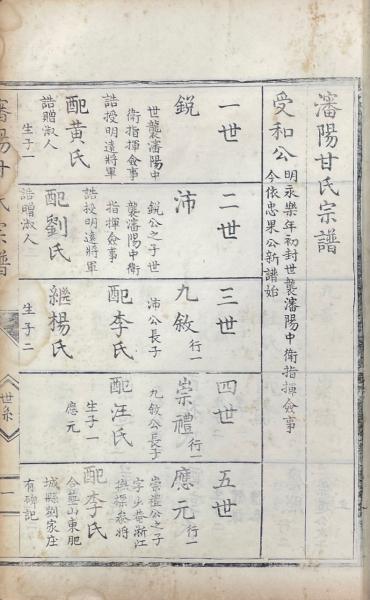 瀋陽甘氏宗譜
受和公
明永樂年初封世襲瀋陽中衛指揮僉事
今依忠果公新譜始
一世
銳
世襲瀋陽中
衛指揮僉事
誥授明遠將軍
配黃氏
誥贈淑人
生子一
二世
沛
銳公之子世
襲瀋陽中衛
指揮僉事
誥授明遠將軍
配劉氏
誥贈淑人
三世
九敘
行一
沛公長子
配李氏
繼楊氏
生子二
四世
崇禮
行一
九敘公長子
配汪氏
生子一
應元
五世
應元
行一
崇禮公之子
字少菴浙江
撫標參將
配李氏
合葬山東肥
城縣劉家庄
有碑記
瀋陽甘氏宗譜
世系
一